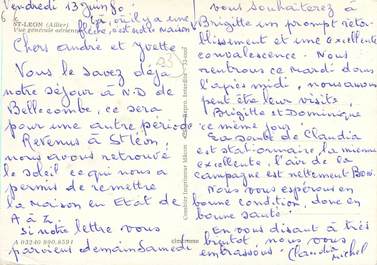 Vendredi 13 Juin 80.
ST-LEON (Allier)
Vue générale aérienne
où il y a une
flèche, c'est notre maison
Chers andré et Yvette.
Vous le savez déjà
notre séjour à N.D de
Bellecombe, ce sera
pour une autre période
Revenus à St Léon,
nous avons retrouvé
le soleil ce qui nous a
permis de remettre
la maison en Etat de
A à Z.
si notre lettre vous
parvient demain Samedi
A 03240 890.8591
Combier Imprimeur Mâcon
vous souhaiterez à
Brigitte un prompt réta-
blissement et une excellente
convalescence. Nous
rentrons ce Mardi dans
l'après midi, nous aurons
peut être leur visite,
Brigitte et Dominique
ce même jour.
La santé de Claudia
est stationnaire, la mienne
excellente, l'air de la
campagne est nettement Bon.
Nous vous espérons en
bonne condition, donc en
bonne santé.
En vous disant à très
bientôt nous vous
embrassons. Claudia
Michel